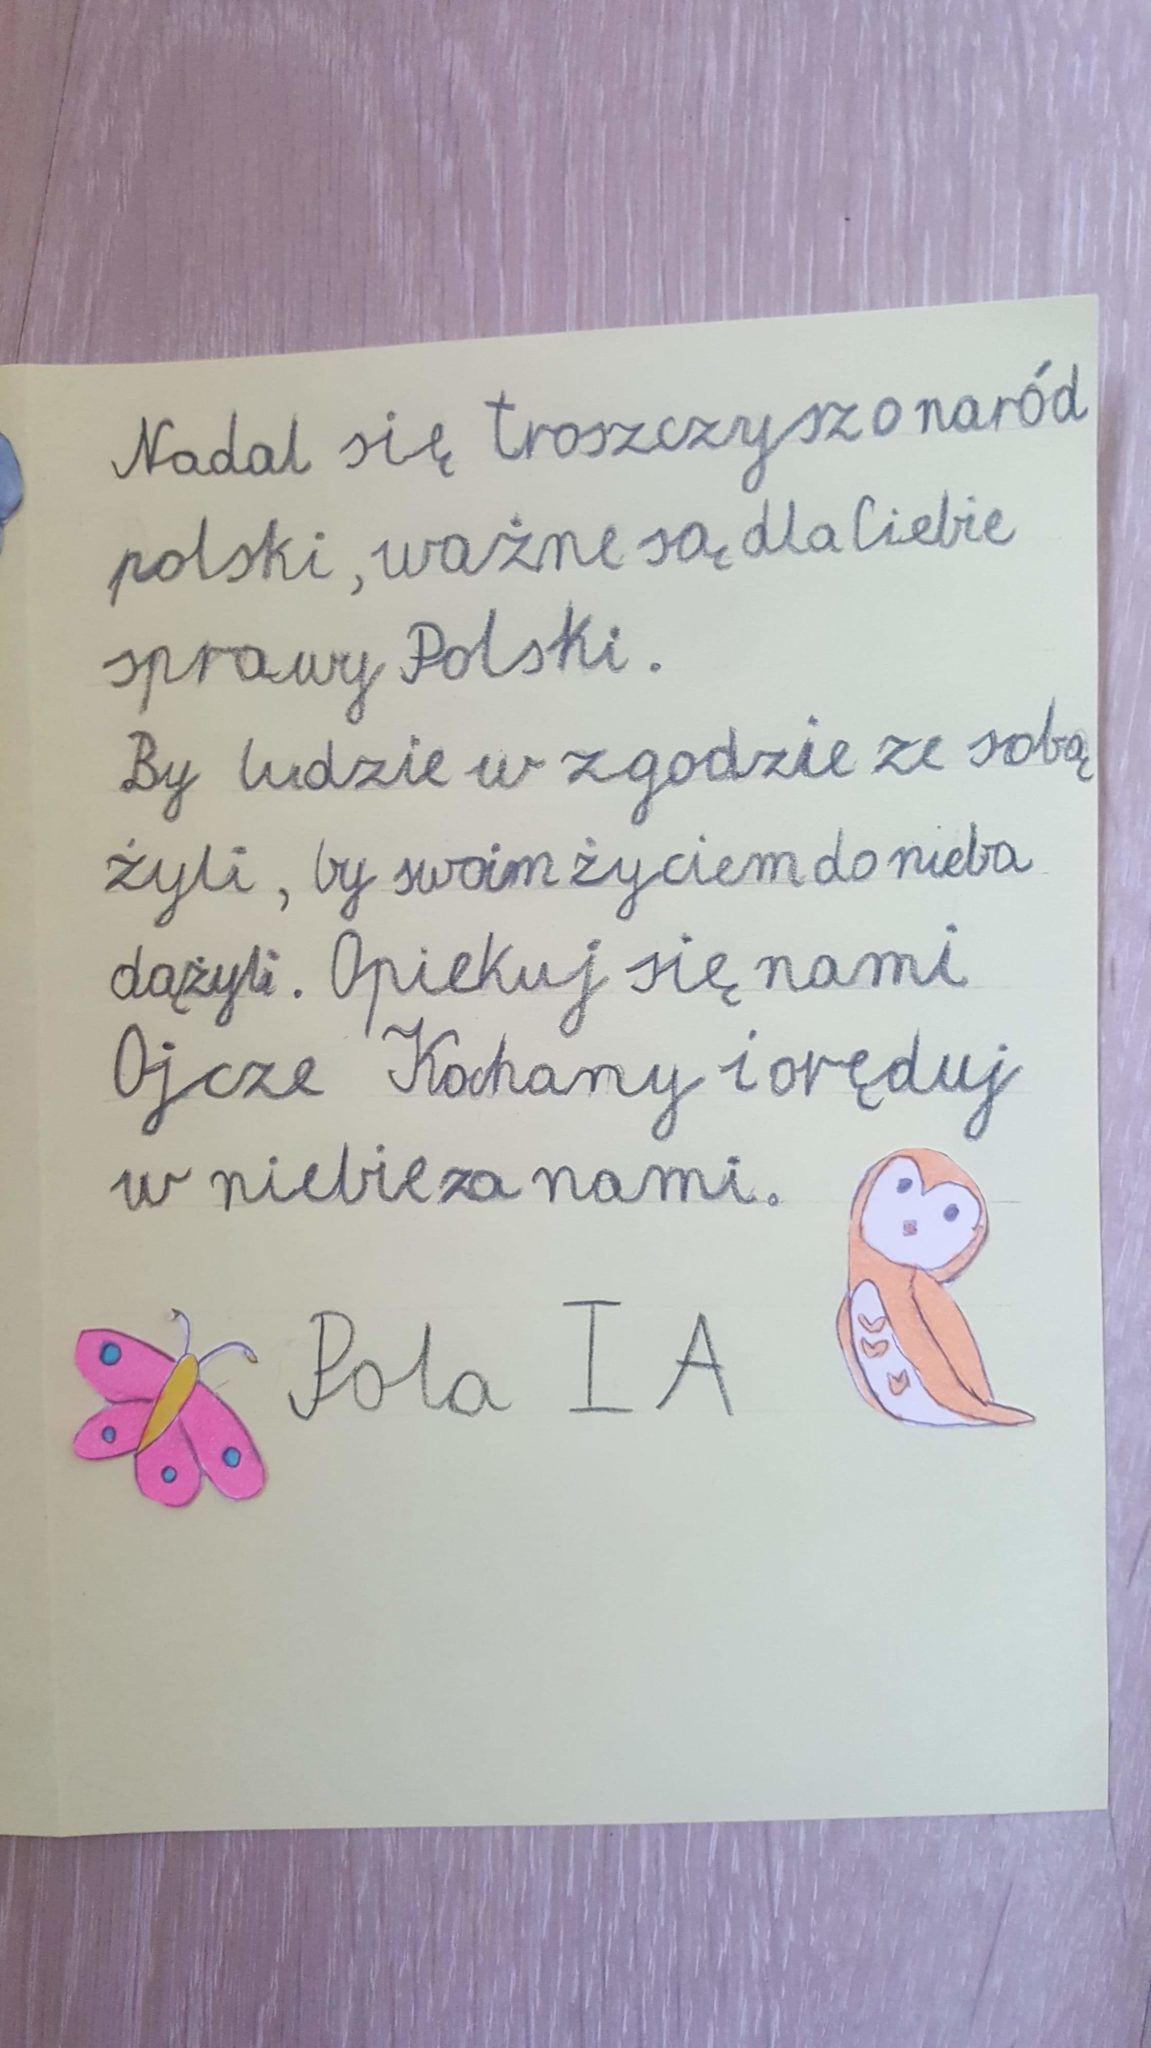 Nadal się troszczysz o naród
polski, ważne są dla Ciebie
sprawy Polski.
By ludzie w zgodzie ze sobą
żyli, by swoim życiem do nieba
dążyli. Opiekuj się nami
Ojcze Kochany i oręduj
w niebie za nami.
Pola I A